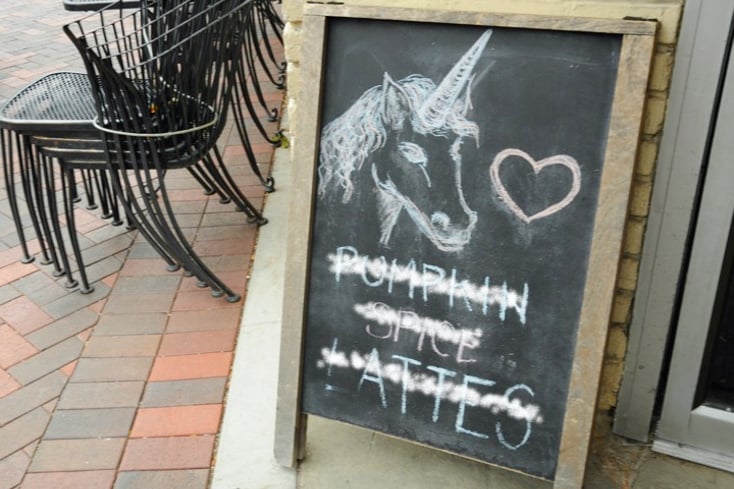 PUMPKIN
SPICE
LATTES